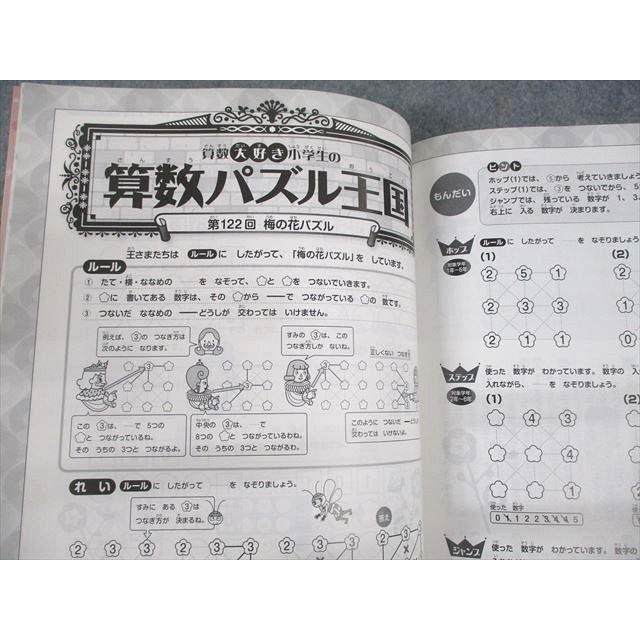 算数大好き小学生の
算数パズル王国
第122回 梅の花パズル
王さまたちは ルールに したがって、「梅の花パズル」を しています。
ルール
① たて・横・ななめの をなぞって、 と を つないでいきます。
② に 書いてある 数字は、その から ーで つながっている の 数です。
③ つないだ ななめの ーどうしが 交わっては いけません。
例えば、③の つなぎ方は
次のように なります。
すみの ③は、この
つなぎ方しか ないね。
正しくない つなぎ方
この ③は、ーで 5つの
と つながっているね。
その うちの 3つと つながるよ。
中央の ③は、ーで
8つの と つながっているわね。
その うちの 3つと つながるわ。
このように つないだ ーどうしが
交わっては いけないよ。
れい ルールに したがって ーを なぞりましょう。
すみに ある ③は
つなぎ方が 決まるね。
答え
2 3 2
もんだい
ヒント
ホップ(1)では、⑤から 考えていきましょう
ステップ(1)では、③を つないでから、
ジャンプでは、残っている 数字が 1、3、
右上に 入る 数字が 決まります。
ホップ
対象学年
1年〜6年
ルールに したがって ーを なぞりましょう。
(1)
(2)
2 5 1
3 3 3
2 1 1
ステップ
対象学年
2年〜6年
使った 数字が わかっています。数字の
入れながら、ーを なぞりましょう。
(1)
(2)
4 3
1
使った 数字
0 1 1 2 2 3 4 4 5
ジャンプ
使った 数字が わかっています。数字の